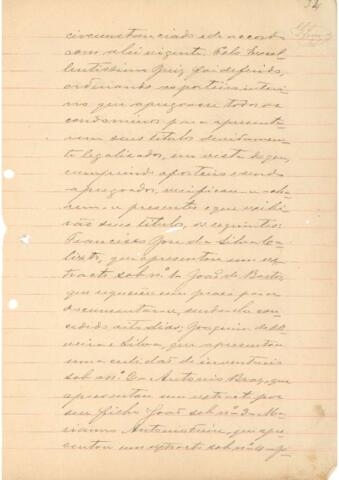 circumstanciados e de accordo
com a lei vigente. Pelo Excel-
lentissimo Juiz foi deferido,
ordenando ao porteiro interi-
no que apregoasse todos os
condominos para apresenta-
rem seus titulos devidamen-
te legalisados, em vista do que,
cumprindo o porteiro e sendo
apregoados, verificou-se acha-
rem-se presentes e que exibi-
rão seus titulos, os seguintes:
Francisco José da Silva Ca-
lixto, que apresentou um ex-
tracto sob nº 1. João de Bastos
que requereu um praso para
documentar-se, sendo-lhe con-
cedido oito dias; Joaquim de Oli-
veira e Silva, que apresentou
uma certidão de inventario
sob o nº 2. Antonio Braz, que
apresentou um extracto por
seu filho João sob nº 3. Ma-
rianno Antonio, que apre-
sentou um extracto sob nº 4.